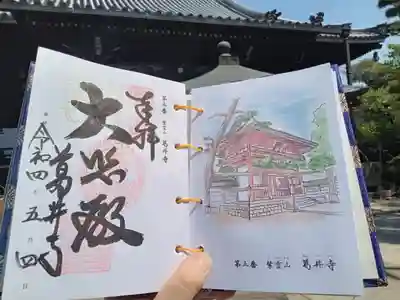 奉拝
第五番 葛井寺
大悲殿
葛井寺
令和四年五月四日
第五番 紫雲山 葛井寺